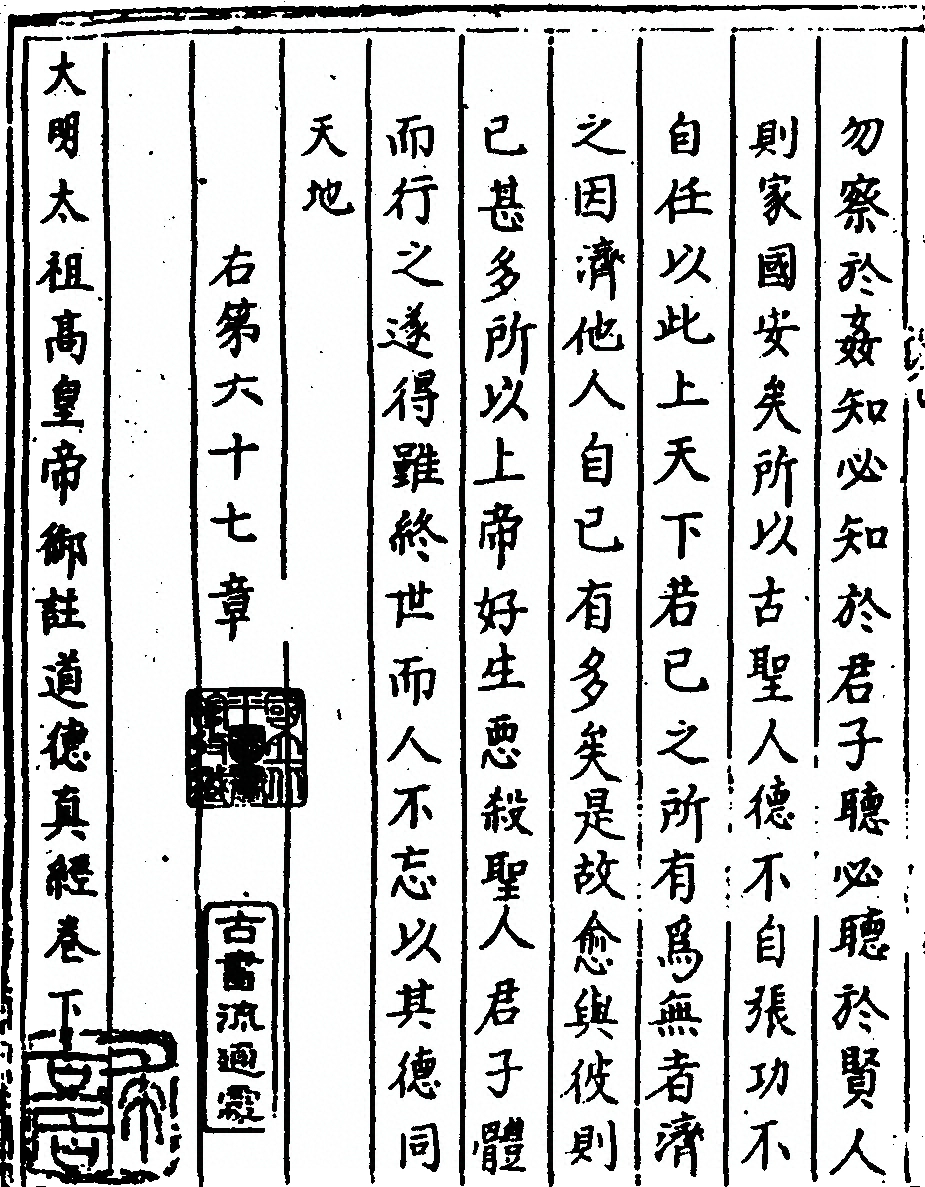 勿察於姦知必知於君子聽必聽於賢人
則家國安矣所以古聖人德不自張功不
自任以此上天下若已之所有爲無者濟
之因濟他人自己有多矣是故愈與彼則
已甚多所以上帝好生惡殺聖人君子體
而行之遂得雖終世而人不忘以其德同
天地
右第六十七章
古書流通處
大明太祖高皇帝御註道德真經卷下